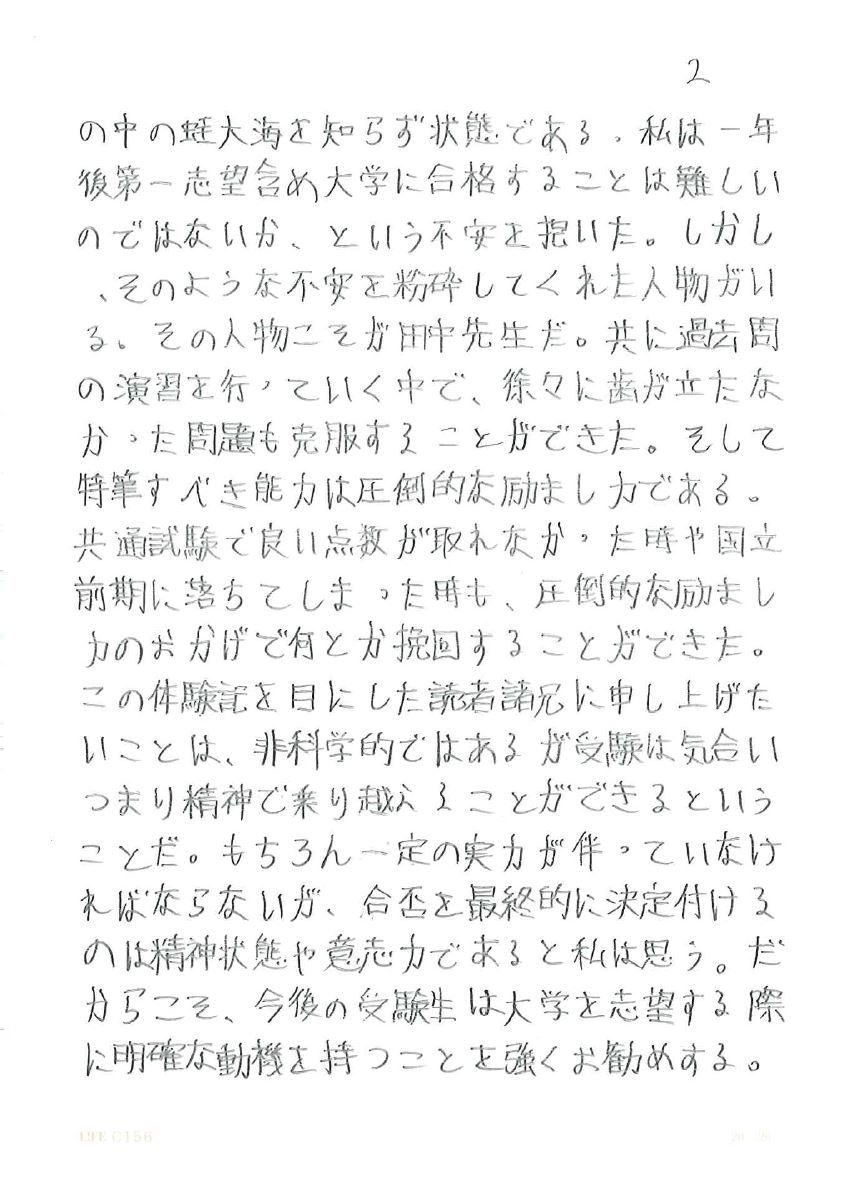 2
の中の蛙大海を知らず状態である。私は一年
後第一志望含め大学に合格することは難しい
のではないか、という不安を抱いた。しかし
、そのような不安を粉砕してくれた人物がい
る。その人物こそが田中先生だ。共に過去問
の演習を行っていく中で、徐々に歯が立たな
かった問題も克服することができた。そして
特筆すべき能力は圧倒的な励まし力である。
共通試験で良い点数が取れなかった時や国立
前期に落ちてしまった時も、圧倒的な励まし
力のおかげで何とか挽回することができた。
この体験記を目にした読者諸兄に申し上げた
いことは、非科学的ではあるが受験は気合い
つまり精神で乗り越えることができるという
ことだ。もちろん一定の実力が伴っていなけ
ればならないが、合否を最終的に決定付ける
のは精神状態や意志力であると私は思う。だ
からこそ、今後の受験生は大学を志望する際
に明確な動機を持つことを強くお勧めする。
LIFE C156